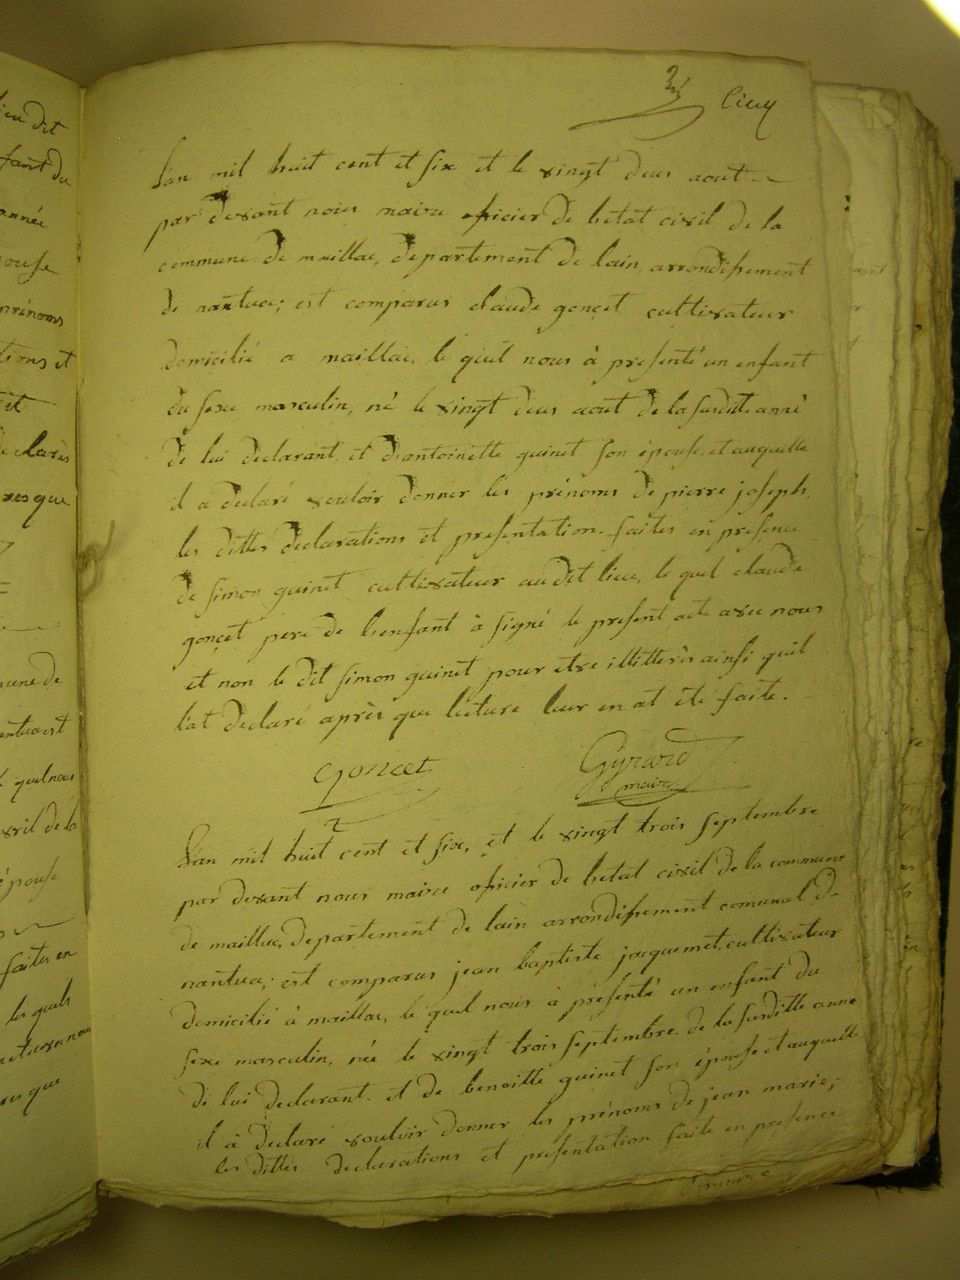 ieu dit
fant du
année
pouse
prénoms
tions et
it
declarés
res que
une de
quel nous
civil de la
épouse
faites en
les quels
que
3 Cicy
Lan mil huit cent et six et le vingt deus aout
par devant nous maire oficier de letat civil de la
commune de maillac, departement de lain arrondissement
de nantuc; est comparus claude gonçet cultivateur
domicilié a maillac, le quil nous à presenté un enfant
du sexe masculin, né le vingt deus aout de la susditte anné
de lui declarant et dantoinette guinet son épouse, et auquelle
il a déclaré vouloir donner les prénoms de pierre joseph,
les dittes déclarations et presentation faites en presence
de simon guinet cultivateur audit lieu, le quel claude
gonçet pere de lienfant à signé le présent acte avec nous
et non le dit simon guinet pour etre illitterés ainsi quil
lat declaré après que lecture leur en at été faite.
Goncet Gyrard
maire
Lan mil huit cent et six, et le vingt trois septembre
par devant nous maire oficier de letat civil de la commune
de maillac, departement de lain arrondissement comunal de
nantuc; est comparus jean baptiste jacquemet, cultivateur
domicilié à maillac, le quel nous à présenté un enfant du
sexe masculin, née le vingt trois septembre de la susditte anné
de lui declarant et de benoitte guinet son épouse et auquelle
il à déclaré vouloir donner les prénoms de jean marie;
les dittes declarations et présentation faite en presence